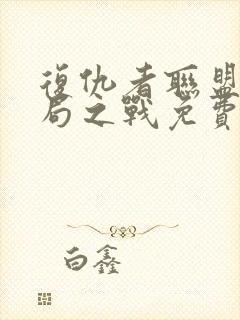 復仇者聯盟
局之戰免費
白鑫